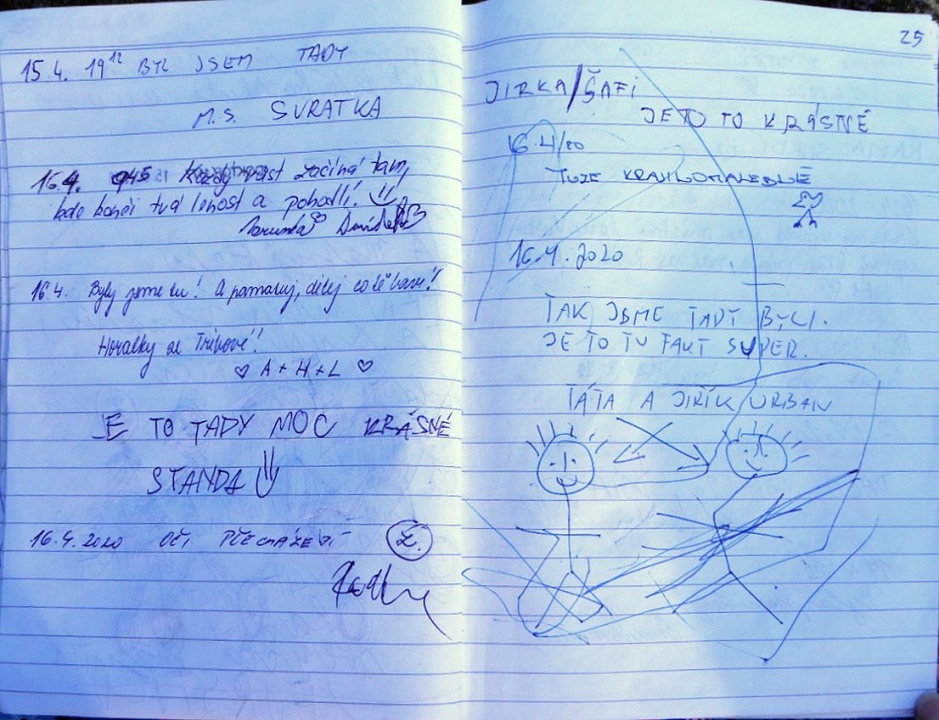 15.4. 19¹² BYL JSEM TADY
M.S. SVRATKA
16.4. 945 Každý růst začíná tam,
kde končí tvá lenost a pohodlí!
16.4. Byly jsme tu! A pamatuj, dělej co tě baví!
Horalky
♡ A + H + L ♡
JE TO TADY MOC KRÁSNÉ
STANDA
16.4.2020 OČI PŘECHÁZEJÍ Z.
25
JIRKA/ŠAFI
JE TO TO KRÁSNÉ
16.4/20
16.4.2020
TAK JSME TADY BYLI.
JE TO TU FAKT SUPER.
TÁTA A JIŘÍK URBAN